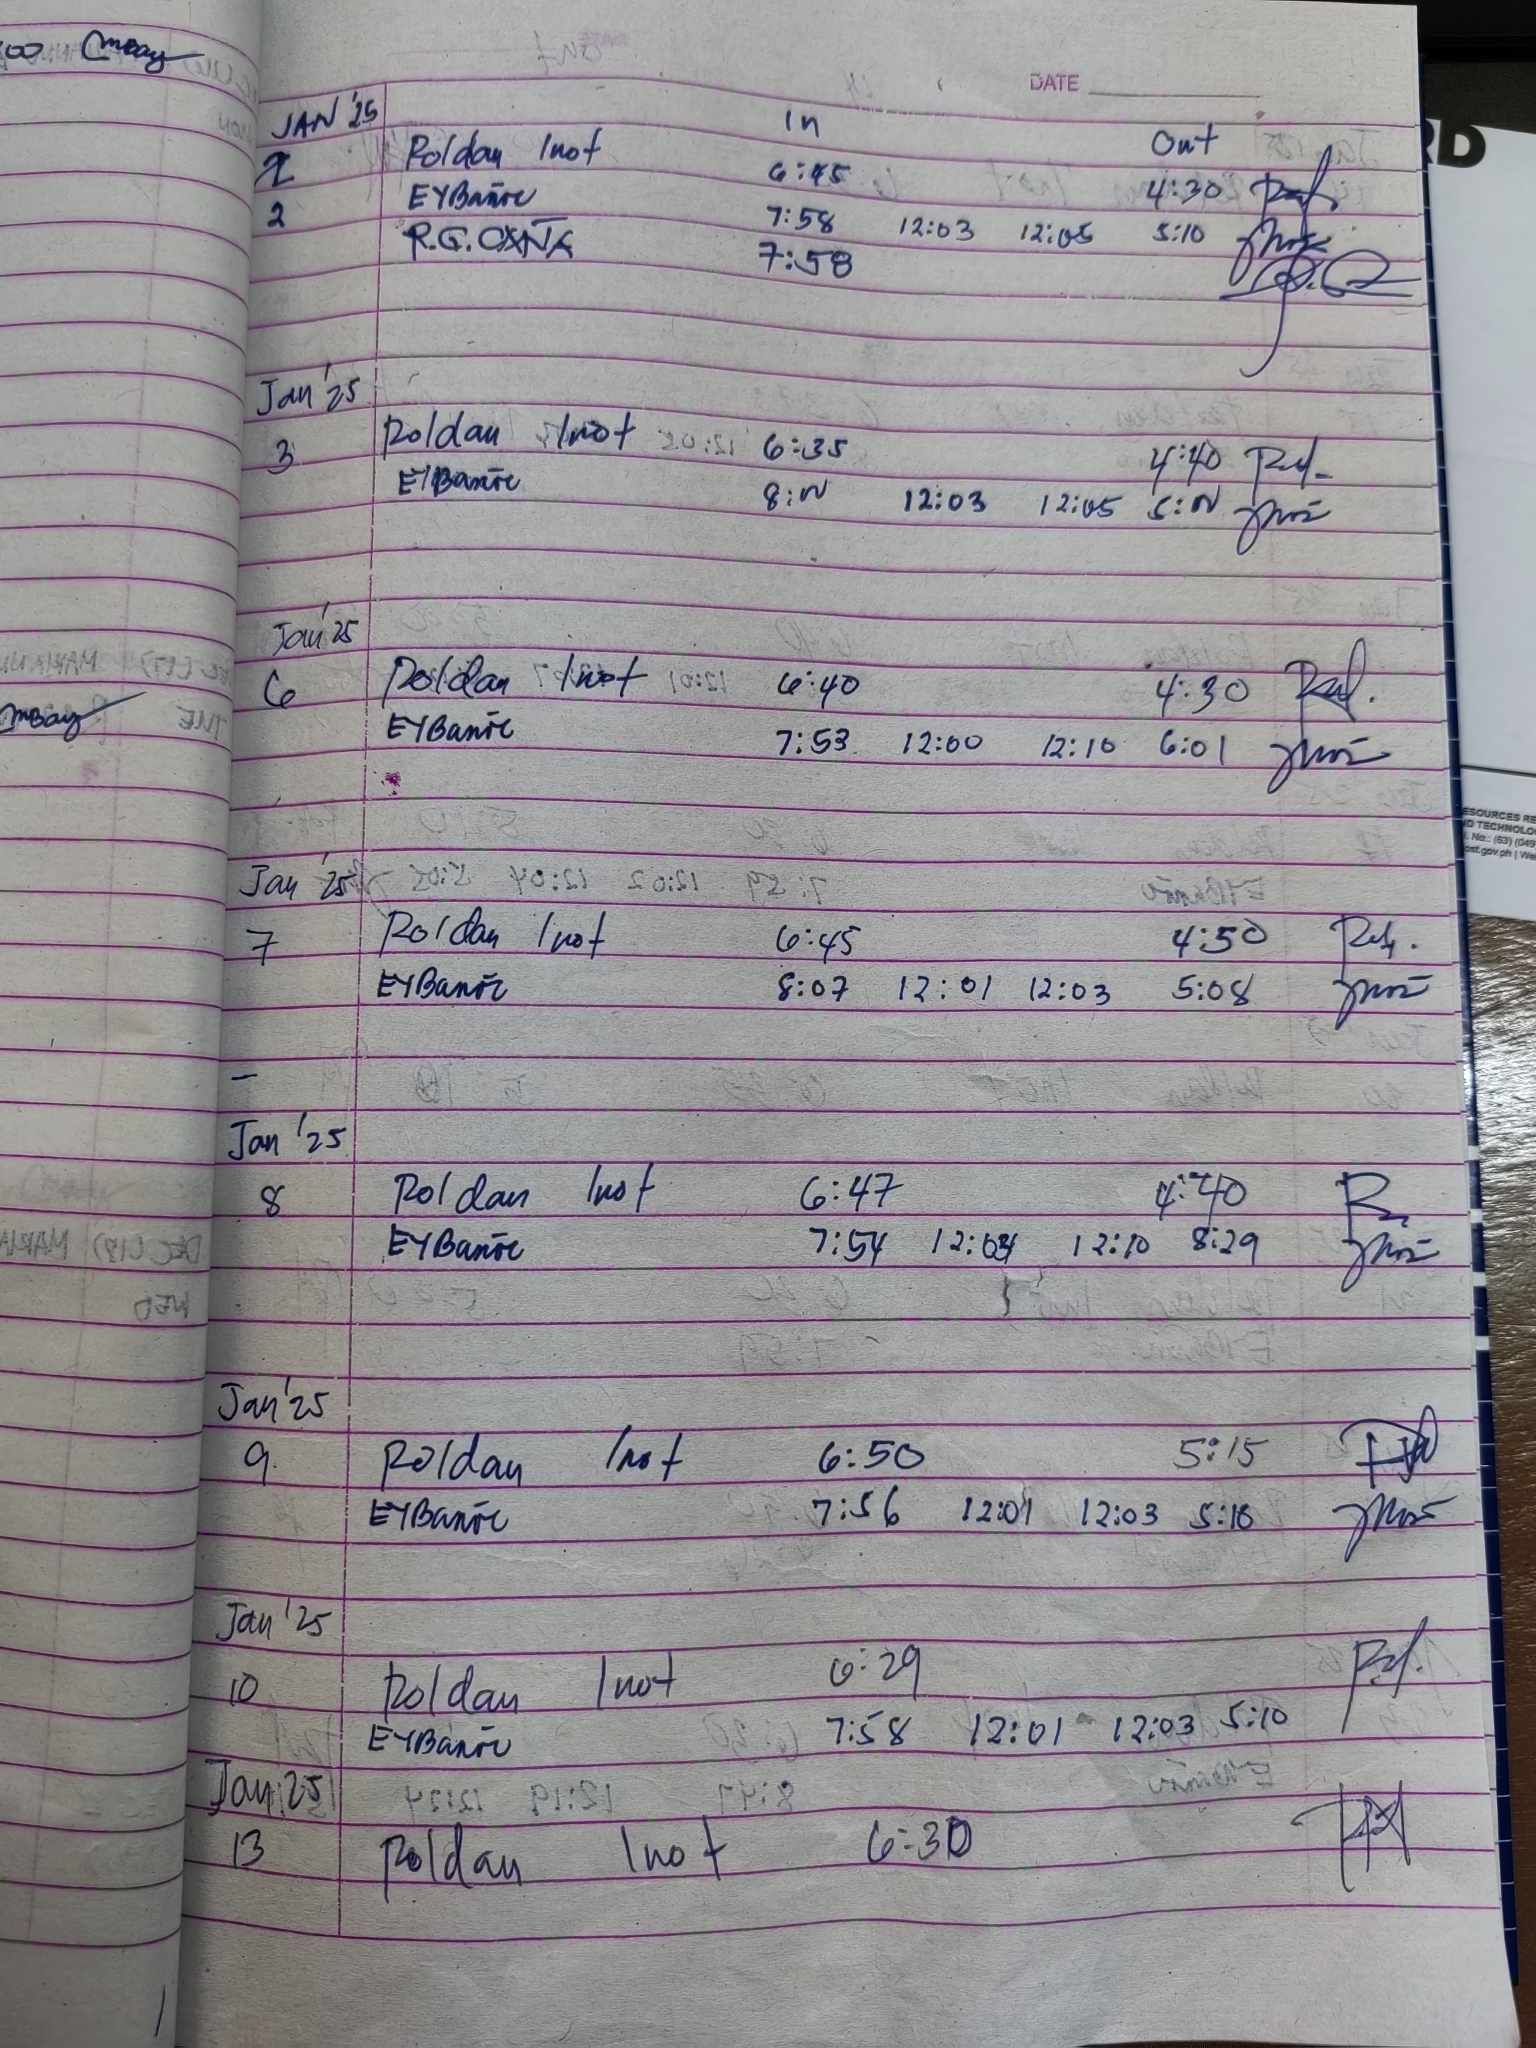 DATE
JAN '25 In Out
2 Roldan Inot 6:45 4:30
2 EYBañoc 7:58 12:03 12:05 5:10
R.G. OXÑA 7:58
Jan '25
3 Roldan Inot 6:35 4:40
EYBañoc 8:00 12:03 12:05 5:00
Jan '25
6 Roldan Inot 6:40 4:30
EYBañoc 7:53 12:00 12:10 6:01
Jan '25
7 Roldan Inot 6:45 4:50
EYBañoc 8:07 12:01 12:03 5:08
-
Jan '25
8 Roldan Inot 6:47 4:40
EYBañoc 7:54 12:04 12:10 8:29
Jan '25
9 Roldan Inot 6:50 5:15
EYBañoc 7:56 12:01 12:03 5:10
Jan '25
10 Roldan Inot 6:29
EYBañoc 7:58 12:01 12:03 5:10
Jan 25
13 Roldan Inot 6:30